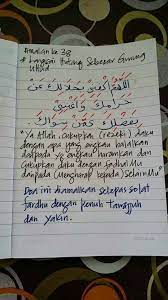 Amalan ke 38
* Langsai Hutang Sebesar Gunung Uhud
اللَّهُمَّ اكْفِنِي بِحَلَالِكَ عَنْ
حَرَامِكَ وَأَغْنِنِي
بِفَضْلِكَ عَمَّنْ سِوَاكَ
"Ya Allah, Cukupkan (rezeki) daku
dengan apa yang engkau halalkan
daripada yg engkau haramkan dan
Cukupkan daku dengan fadhalMu
daripada (mengharap kepada) selainMu"
Doa ini diamalkan selepas solat
fardhu dengan penuh tawajjuh
dan yakin.